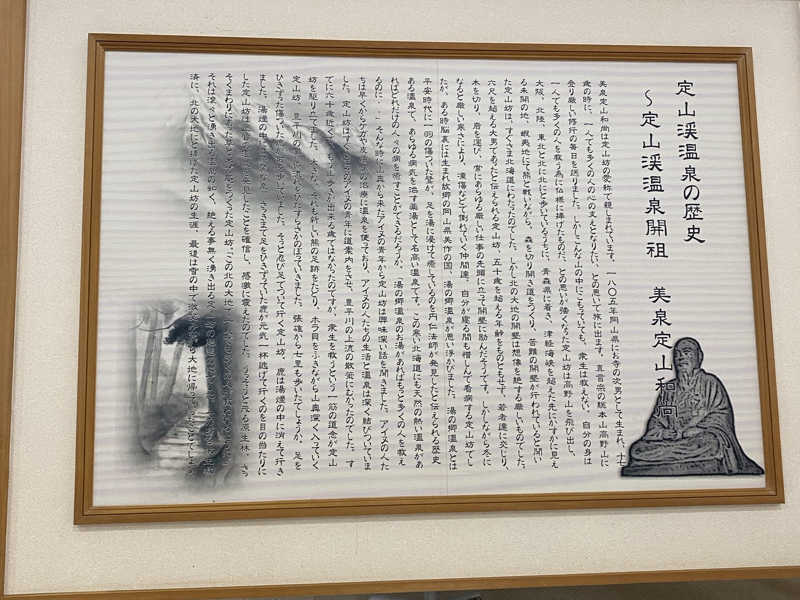 定山渓温泉の歴史
～定山渓温泉開祖 美泉定山和尚
美泉定山和尚は定山坊の愛称で親しまれています。一八〇五年岡山県にお寺の次男として生まれ、十七
歳の時に、一人でも多くの人の心の支えとなりたい、との思いで旅に出ます。真言宗の総本山高野山に
登り厳しい修行の毎日を送りました。しかしこんな山の中にこもっていても、衆生は救えない、自分の身は
一人でも多くの人を救う為に仏様に捧げたものだ、との思いが強くなった定山坊は高野山を飛び出し、
大阪、北陸、東北と北に北にと歩いているうちに、青森県に着き、津軽海峡を越えた先にかすかに見え
る未開の地、蝦夷地にて熊と戦いながら、森を切り開き道をつくり、苦難の開墾が行われていると聞い
た定山坊は、すぐさま北海道にわたったのでした。しかし北の大地の開墾は想像を絶する厳しいものでした。
六尺を超える大男であったと伝えられる定山坊、五十歳を超える年齢をものともせず、若者達に交じり、
木を切り、岩を運び、常にあらゆる厳しい仕事の先頭に立って開墾に励んだそうです。しかしながら冬に
なると厳しい寒さにより、凍傷などで倒れていく仲間達。自分が寝る間も惜しんで看病する定山坊でし
たが、ある時脳裏には生まれ故郷の岡山県美作の国、湯の郷温泉が思い浮かびました。湯の郷温泉とは
平安時代に一羽の傷ついた鷺が、足を湯に浸けて癒しているのを円仁法師が発見したと伝えられる歴史
ある温泉で、あらゆる病気を治す薬湯として名高い温泉です。この寒い北海道にも天然の熱い温泉があ
ればどれだけの人々の病を癒すことができるだろうか、湯の郷温泉のお湯があればもっと多くの人を救え
るのに・・そんな時に山奥から来たアイヌの青年から定山坊は興味深い話を聞きました。アイヌの人た
ちは早くからケガや病気の治療に温泉を使っており、アイヌの人たちの生活と温泉は深く結びついていま
した。定山坊はすぐにそのアイヌの青年に道案内をさせ、豊平川の上流の散策にむかったのでした。す
でに六十歳近く、とても山歩きが出来る歳ではなかったのですが、衆生を救うという一筋の道念が定山
坊を駆り立てました。大きなそれも新しい熊の足跡をたどり、ホラ貝をふきながら山奥深く入っていく
定山坊。豊平川の激しい流れをひたすらさかのぼっていきました。張碓から七里も歩いたでしょうか、足を
ひきずった傷ついた鹿が
そっと忍び足でついて行く定山坊。鹿は湯煙の中に消えて行き
ました。湯煙の中
さっきまで足をひきずっていた鹿が元気一杯逃げて行くのを目の当たりに
した定山坊は
を発見したことを確信し、感激に震えたのでした。うっそうと茂る原生林、さっ
そくまわりにあった
をつくった定山坊。「この北の大地
それは滾々と湧き出る
絶える事無く湧き出る
済に、北の大地に捧げた定山坊の生涯、最後は雪の中で